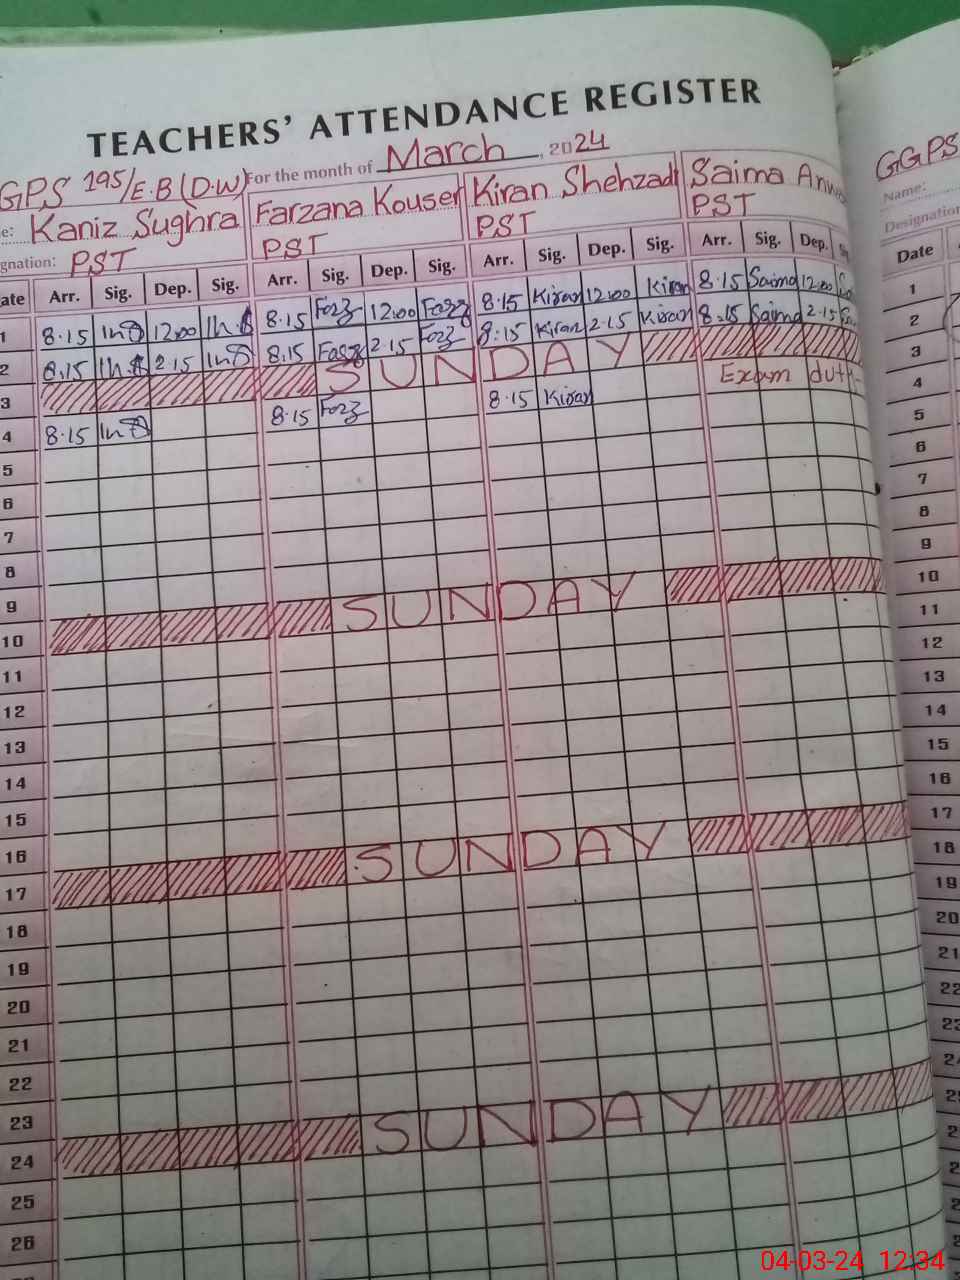 TEACHERS' ATTENDANCE REGISTER
GPS 195/E.B (D.W) For the month of March, 2024
Kaniz Sughra Farzana Kouser Kiran Shehzadi Saima
PST PST PST PST
Arr. Sig. Dep. Sig. Arr. Sig. Dep. Sig. Arr. Sig. Dep. Sig. Arr. Sig. Dep.
1 8.15 12.00 8.15 12.00 8.15 Kiran 12.00 Kiran 8.15 Saima 12.00
2 8.15 2.15 8.15 2.15 8.15 Kiran 2.15 Kiran 8.15 Saima 2.15
3 SUNDAY
4 8.15 8.15 8.15 Kiran Exam duty
5
6
7
8
9
10 SUNDAY
11
12
13
14
15
16
17 SUNDAY
18
19
20
21
22
23
24 SUNDAY
25
26
GGPS
Name:
Designation
Date
1
2
3
4
5
6
7
8
9
10
11
12
13
14
15
16
17
18
19
20
21
22
23
04-03-24 12:34